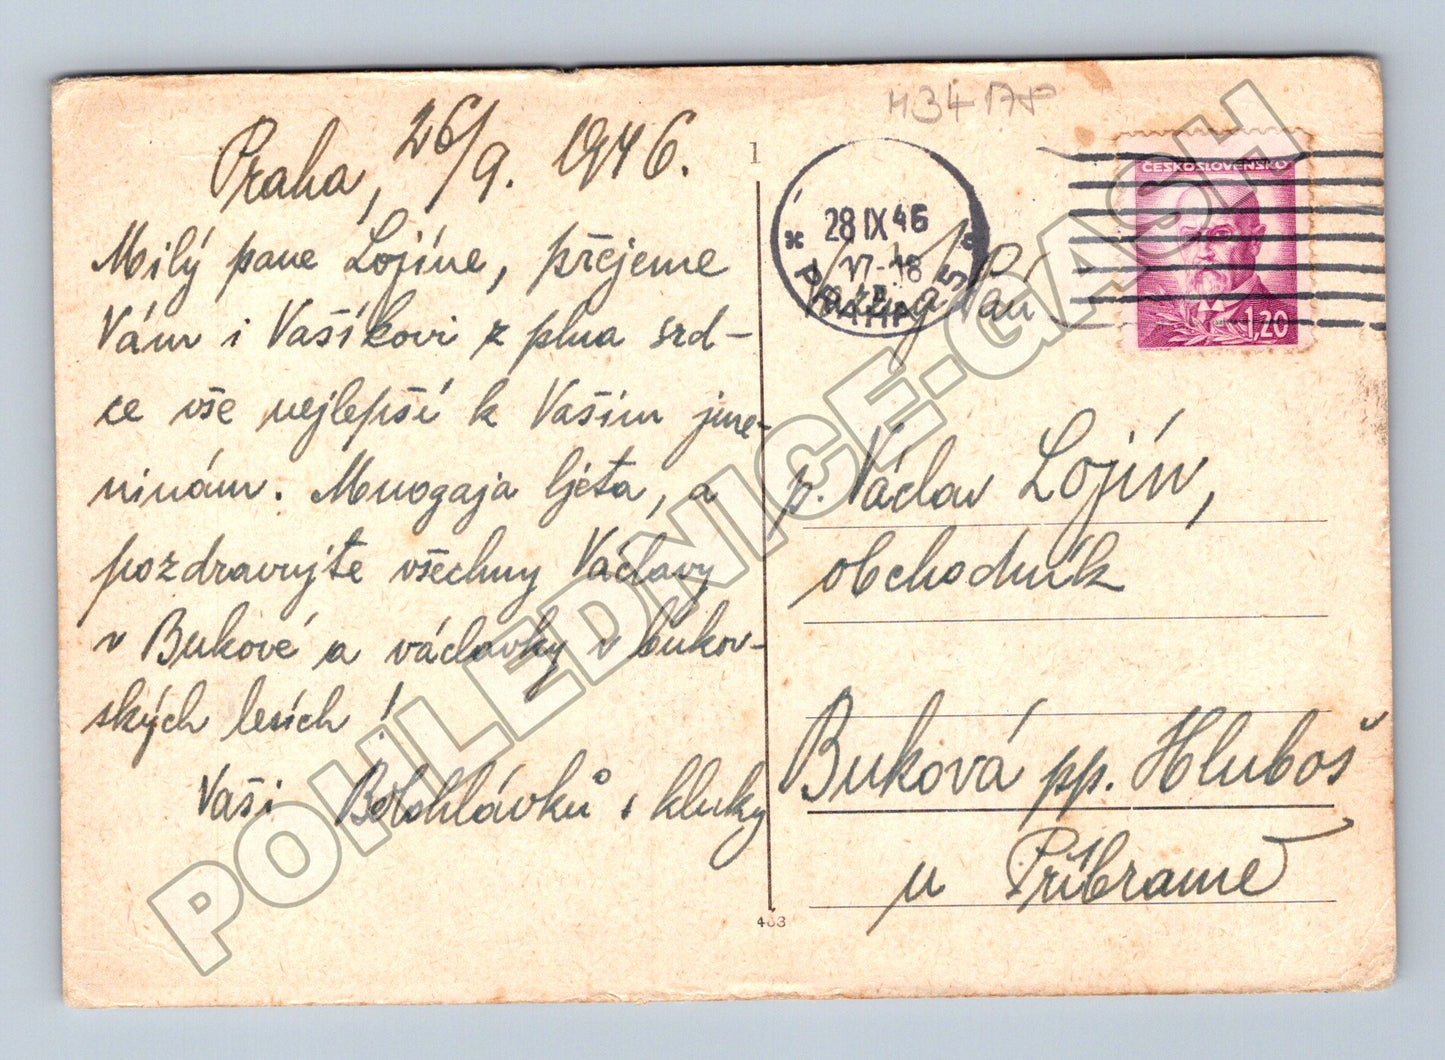 Praha, 26/9. 1946.
Milý pane Lojíne, přejeme
Vám i Vašíkovi z plna srd-
ce vše nejlepší k Vašim jme-
ninám. Mnogaja ljeta, a
pozdravujte všechny Vaclavy
v Bukové a václavky v bukov-
ských lesích!
Vaši Bolohlávků i kluky
1
463
H34178
28 IX 46
17-18
PRAHA 25
ČESKOSLOVENSKO
1,20
Vážený Pan
p. Václav Lojín,
obchodník
Buková pp. Hluboš
u Příbramě
POHLEDNICE-GASH